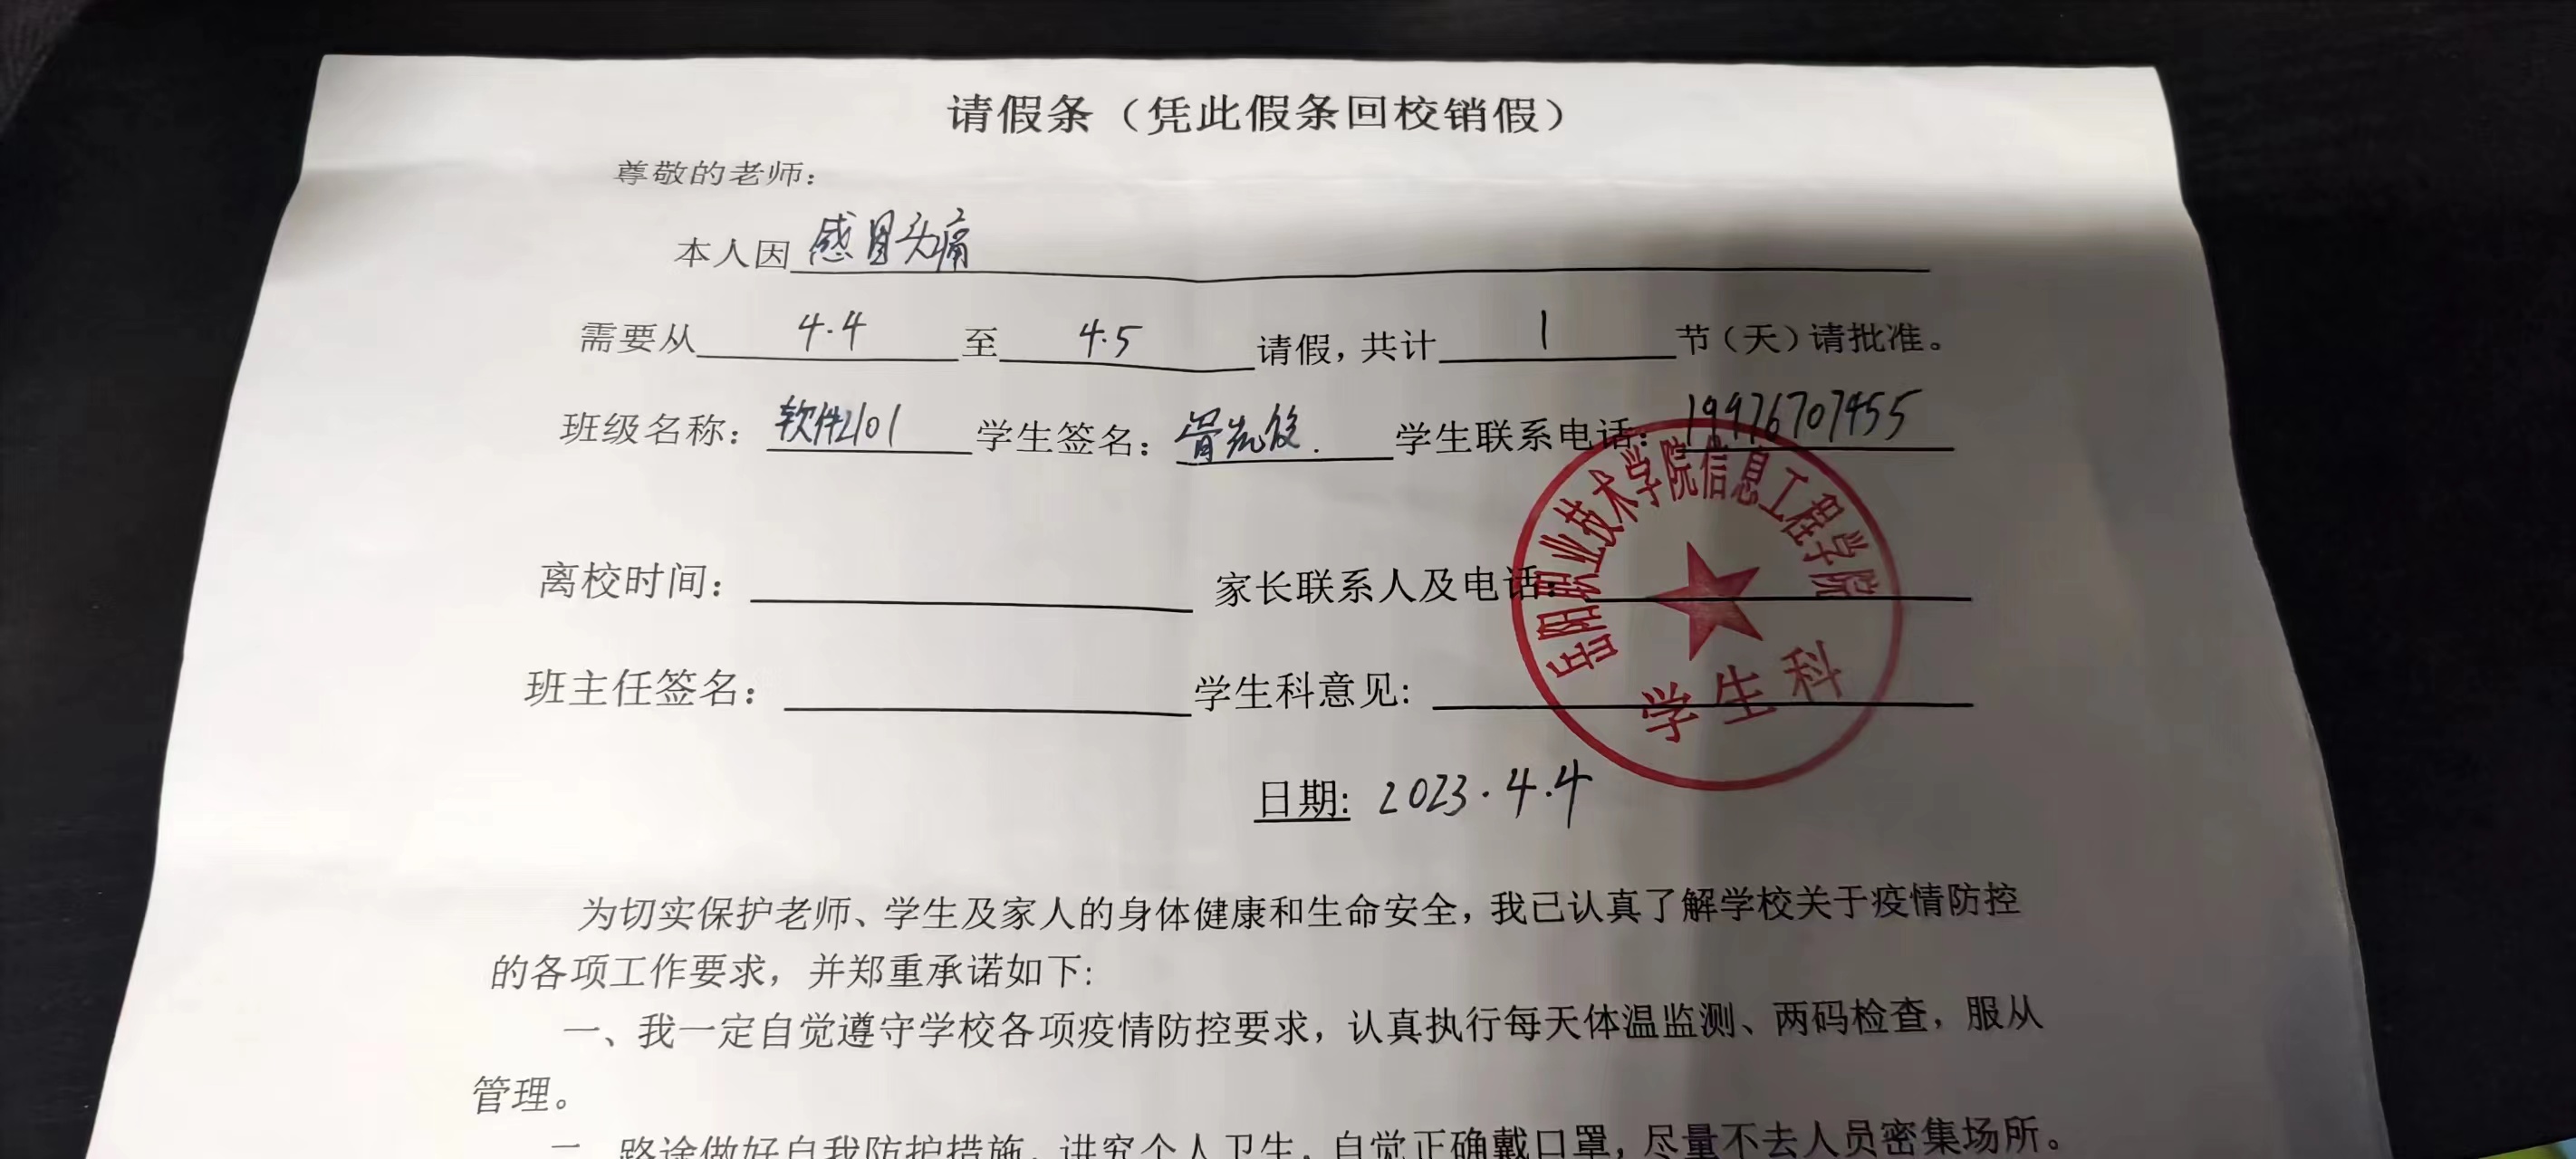 请假条（凭此假条回校销假）
尊敬的老师：
本人因 感冒头痛
需要从 4.4 至 4.5 请假，共计 1 节（天）请批准。
班级名称： 软件2101 学生签名： 学生联系电话： 19976707955
离校时间： 家长联系人及电话：
班主任签名： 学生科意见:
岳阳职业技术学院信息工程学院
学生科
日期: 2023.4.4
为切实保护老师、学生及家人的身体健康和生命安全，我已认真了解学校关于疫情防控
的各项工作要求，并郑重承诺如下:
一、我一定自觉遵守学校各项疫情防控要求，认真执行每天体温监测、两码检查，服从
管理。
二、路途做好自我防护措施，讲究个人卫生，自觉正确戴口罩，尽量不去人员密集场所。